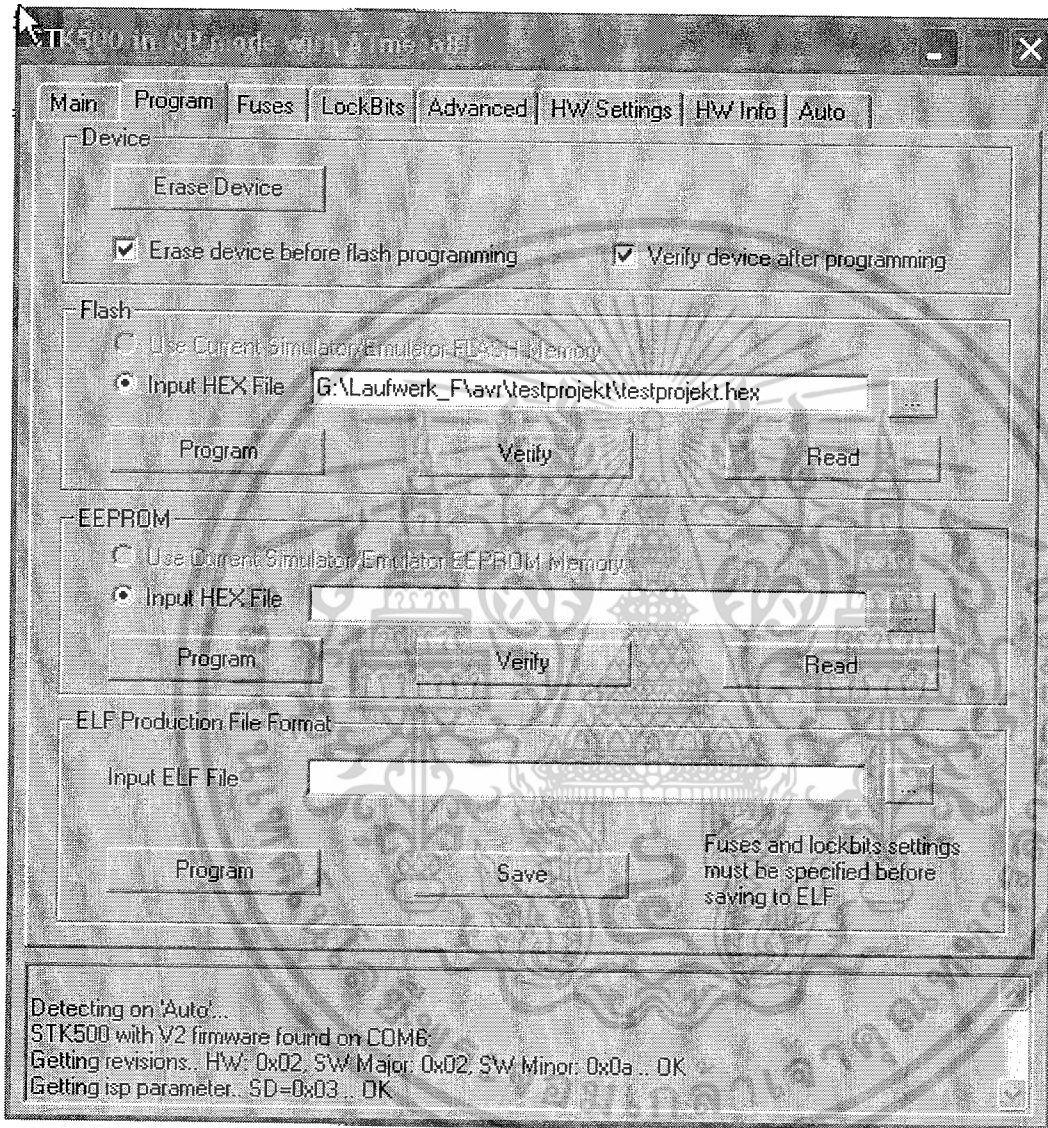 STK500 in ISP mode with ATmega8
Main Program Fuses LockBits Advanced HW Settings HW Info Auto
Device
Erase Device
Erase device before flash programming Verify device after programming
Flash
Use Current Simulator/Emulator FLASH Memory
Input HEX File G:\Laufwerk_F\avr\testprojekt\testprojekt.hex ...
Program Verify Read
EEPROM
Use Current Simulator/Emulator EEPROM Memory
Input HEX File ...
Program Verify Read
ELF Production File Format
Input ELF File ...
Program Save Fuses and lockbits settings
must be specified before
saving to ELF
Detecting on 'Auto'...
STK500 with V2 firmware found on COM6:
Getting revisions.. HW: 0x02, SW Major: 0x02, SW Minor: 0x0a .. OK
Getting isp parameter.. SD=0x03 .. OK